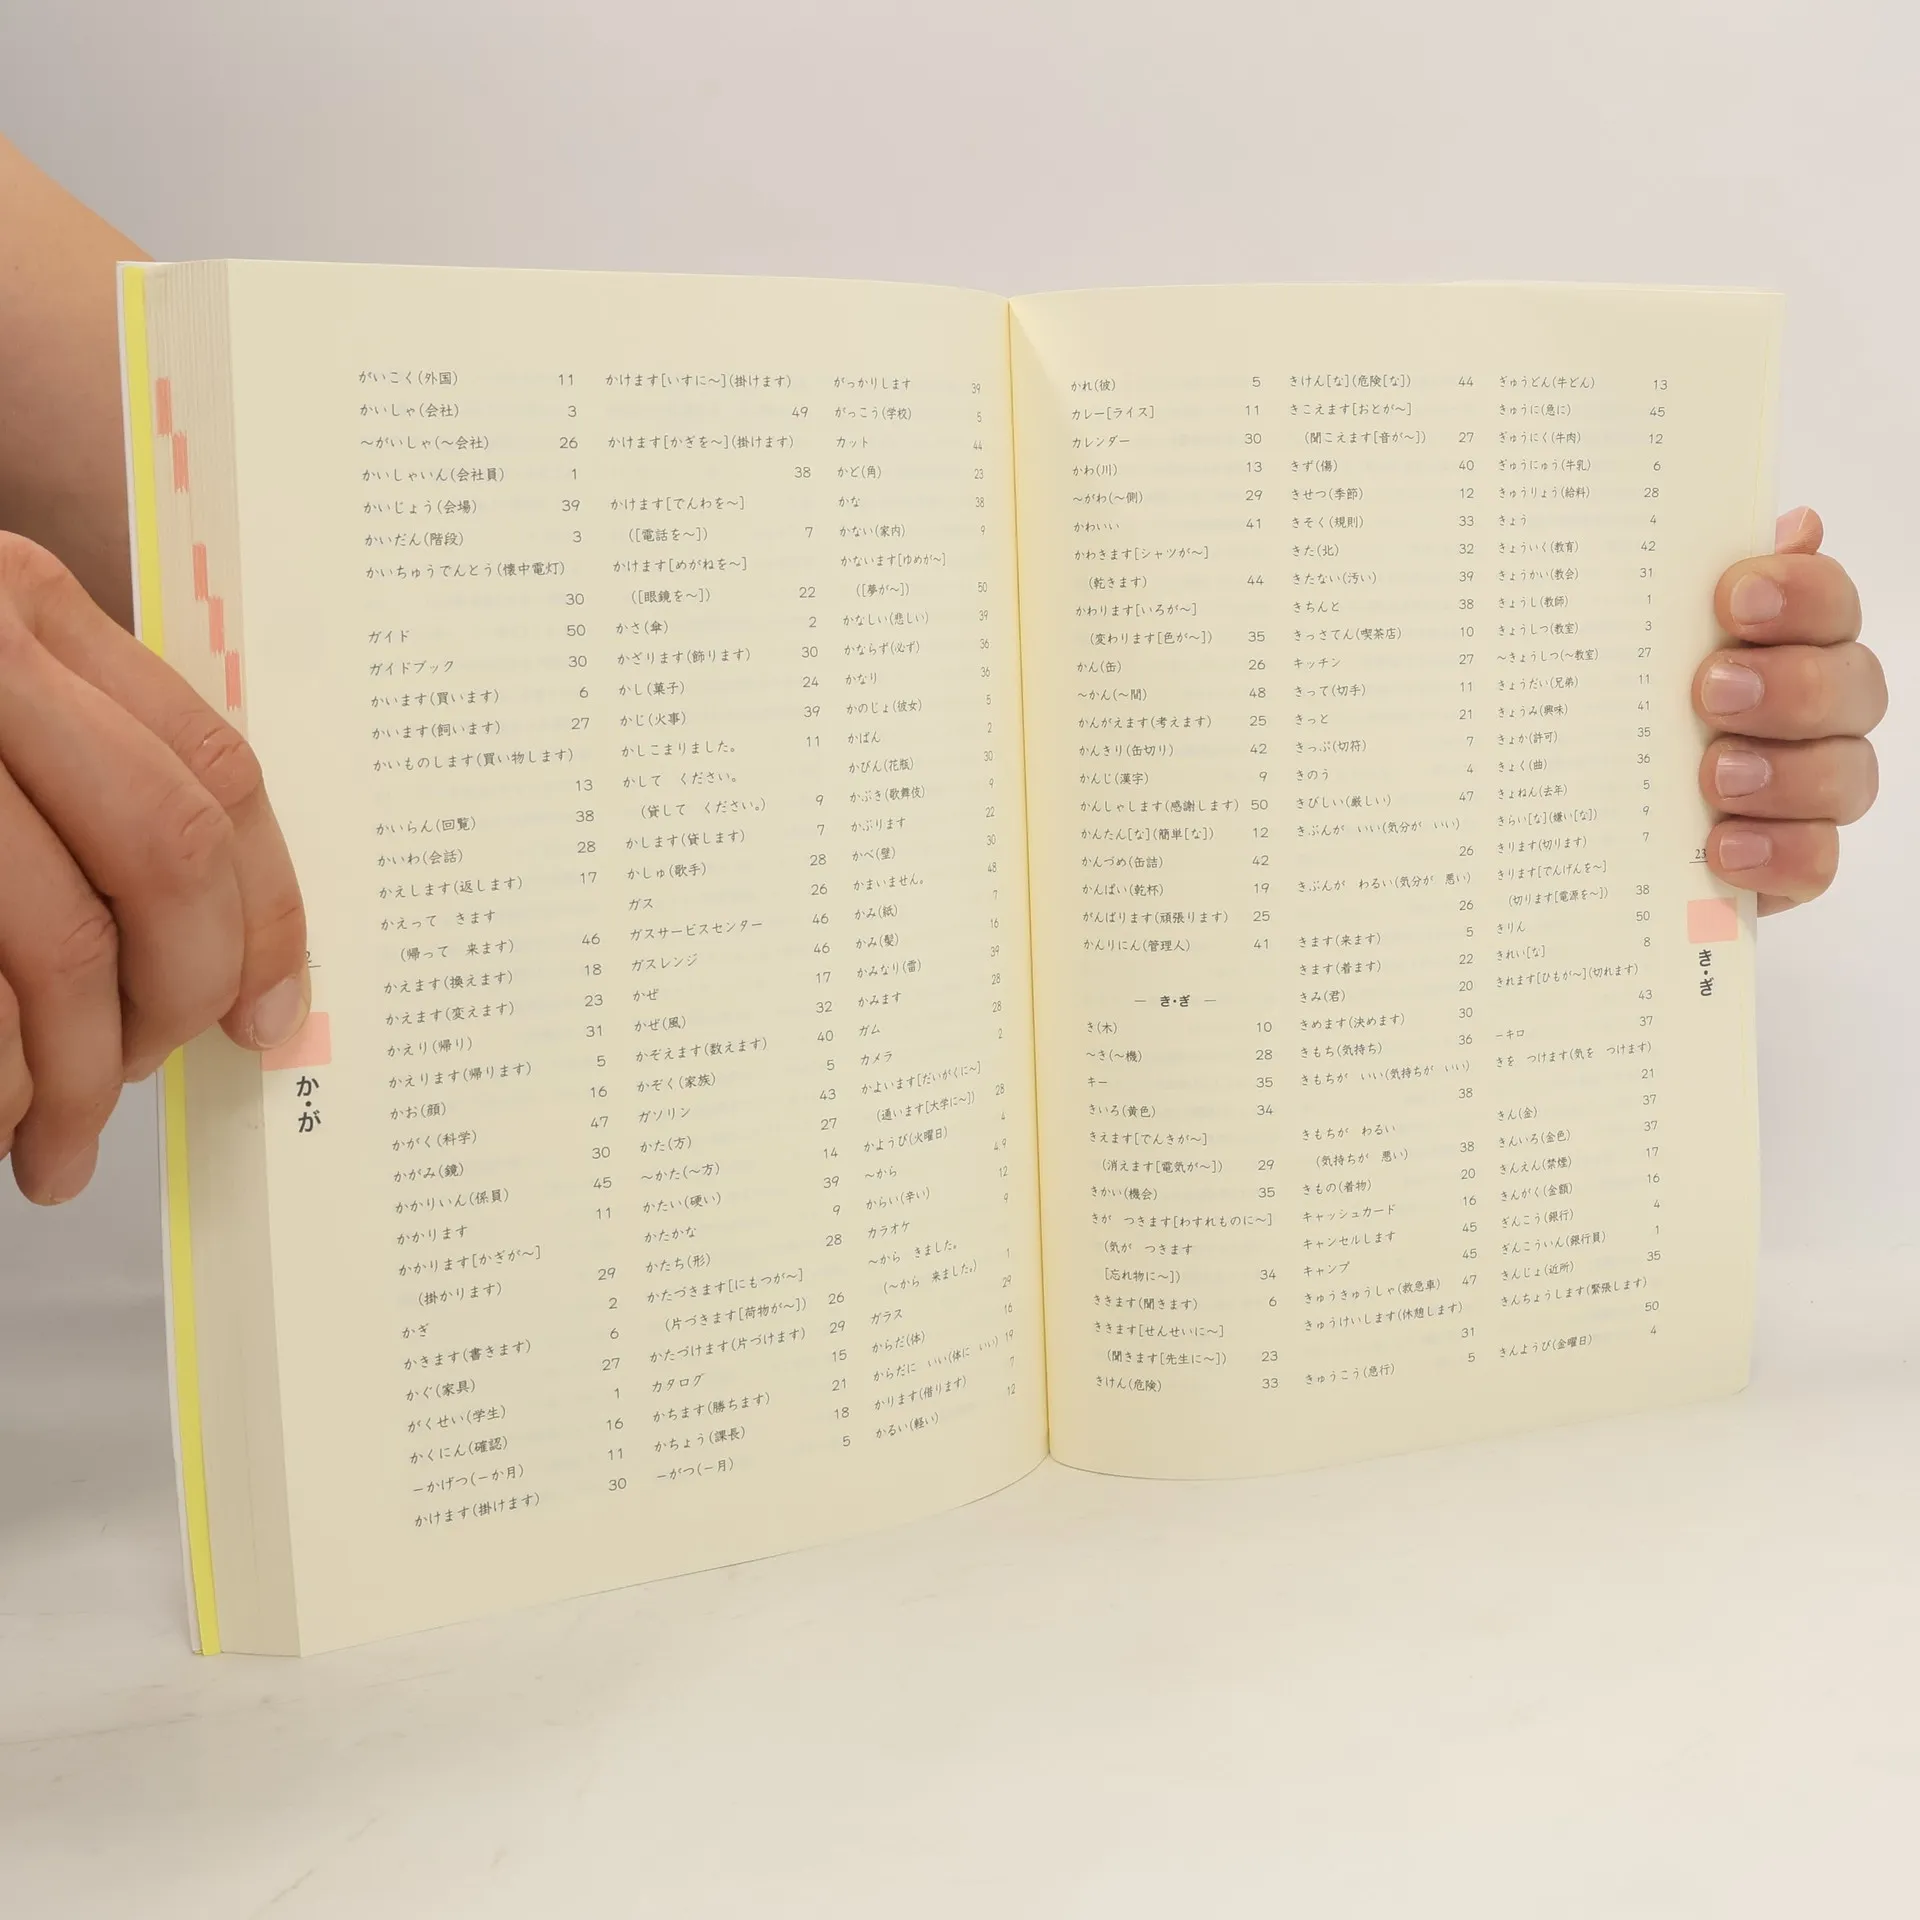 がいこく(外国) 11
かいしゃ(会社) 3
～がいしゃ(～会社) 26
かいしゃいん(会社員) 1
かいじょう(会場) 39
かいだん(階段) 3
かいちゅうでんとう(懐中電灯)
30
ガイド 50
ガイドブック 30
かいます(買います) 6
かいます(飼います) 27
かいものします(買い物します)
13
かいらん(回覧) 38
かいわ(会話) 28
かえします(返します) 17
かえって きます
(帰って 来ます) 46
かえます(換えます) 18
かえます(変えます) 23
かえり(帰り) 31
かえります(帰ります) 5
かお(顔) 16
かがく(科学) 47
かがみ(鏡) 30
かかりいん(係員) 45
かかります 11
かかります[かぎが～]
(掛かります) 29
かぎ 2
かきます(書きます) 6
かぐ(家具) 27
がくせい(学生) 1
かくにん(確認) 16
－かげつ(－か月) 11
かけます(掛けます) 30
かけます[いすに～](掛けます)
49
かけます[かぎを～](掛けます)
38
かけます[でんわを～]
([電話を～]) 7
かけます[めがねを～]
([眼鏡を～]) 22
かさ(傘) 2
かざります(飾ります) 30
かし(菓子) 24
かじ(火事) 39
かしこまりました。 11
かして ください。
(貸して ください。) 9
かします(貸します) 7
かしゅ(歌手) 28
ガス 26
ガスサービスセンター 46
ガスレンジ 46
かぜ 17
かぜ(風) 32
かぞえます(数えます) 40
かぞく(家族) 5
ガソリン 43
かた(方) 27
～かた(～方) 14
かたい(硬い) 39
かたかな 9
かたち(形) 28
かたづきます[にもつが～]
(片づきます[荷物が～]) 26
かたづけます(片づけます) 29
カタログ 15
かちます(勝ちます) 21
かちょう(課長) 18
－がつ(－月) 5
がっかりします 39
がっこう(学校) 5
カット 44
かど(角) 23
かな 38
かない(家内) 9
かないます[ゆめが～]
([夢が～]) 50
かなしい(悲しい) 39
かならず(必ず) 36
かなり 36
かのじょ(彼女) 5
かばん 2
かびん(花瓶) 30
かぶき(歌舞伎) 9
かぶります 22
かべ(壁) 30
かまいません。 48
かみ(紙) 7
かみ(髪) 16
かみなり(雷) 39
かみます 28
ガム 28
カメラ 2
かよいます[だいがくに～]
(通います[大学に～]) 28
かようび(火曜日) 4
～から 4,9
からい(辛い) 12
カラオケ 9
～から きました。
(～から 来ました。) 1
ガラス 29
からだ(体) 16
からだに いい(体に いい) 19
かります(借ります) 7
かるい(軽い) 12
2
か・が
かれ(彼) 5
カレー[ライス] 11
カレンダー 30
かわ(川) 13
～がわ(～側) 29
かわいい 41
かわきます[シャツが～]
(乾きます) 44
かわります[いろが～]
(変わります[色が～]) 35
かん(缶) 26
～かん(～間) 48
かんがえます(考えます) 25
かんきり(缶切り) 42
かんじ(漢字) 9
かんしゃします(感謝します) 50
かんたん[な](簡単[な]) 12
かんづめ(缶詰) 42
かんぱい(乾杯) 19
がんばります(頑張ります) 25
かんりにん(管理人) 41
－ き・ぎ －
き(木) 10
～き(～機) 28
キー 35
きいろ(黄色) 34
きえます[でんきが～]
(消えます[電気が～]) 29
きかい(機会) 35
きが つきます[わすれものに～]
(気が つきます
[忘れ物に～]) 34
ききます(聞きます) 6
ききます[せんせいに～]
(聞きます[先生に～]) 23
きけん(危険) 33
きけん[な](危険[な]) 44
きこえます[おとが～]
(聞こえます[音が～]) 27
きず(傷) 40
きせつ(季節) 12
きそく(規則) 33
きた(北) 32
きたない(汚い) 39
きちんと 38
きっさてん(喫茶店) 10
キッチン 27
きって(切手) 11
きっと 21
きっぷ(切符) 7
きのう 4
きびしい(厳しい) 47
きぶんが いい(気分が いい)
26
きぶんが わるい(気分が 悪い)
26
きます(来ます) 5
きます(着ます) 22
きみ(君) 20
きめます(決めます) 30
きもち(気持ち) 36
きもちが いい(気持ちが いい)
38
きもちが わるい
(気持ちが 悪い) 38
きもの(着物) 20
キャッシュカード 16
キャンセルします 45
キャンプ 45
きゅうきゅうしゃ(救急車) 47
きゅうけいします(休憩します)
31
きゅうこう(急行) 5
ぎゅうどん(牛どん) 13
きゅうに(急に) 45
ぎゅうにく(牛肉) 12
ぎゅうにゅう(牛乳) 6
きゅうりょう(給料) 28
きょう 4
きょういく(教育) 42
きょうかい(教会) 31
きょうし(教師) 1
きょうしつ(教室) 3
～きょうしつ(～教室) 27
きょうだい(兄弟) 11
きょうみ(興味) 41
きょか(許可) 35
きょく(曲) 36
きょねん(去年) 5
きらい[な](嫌い[な]) 9
きります(切ります) 7
きります[でんげんを～]
(切ります[電源を～]) 38
きりん 50
きれい[な] 8
きれます[ひもが～](切れます)
43
－キロ 37
きを つけます(気を つけます)
21
きん(金) 37
きんいろ(金色) 37
きんえん(禁煙) 17
きんがく(金額) 16
ぎんこう(銀行) 4
ぎんこういん(銀行員) 1
きんじょ(近所) 35
きんちょうします(緊張します)
50
きんようび(金曜日) 4
23
き・ぎ